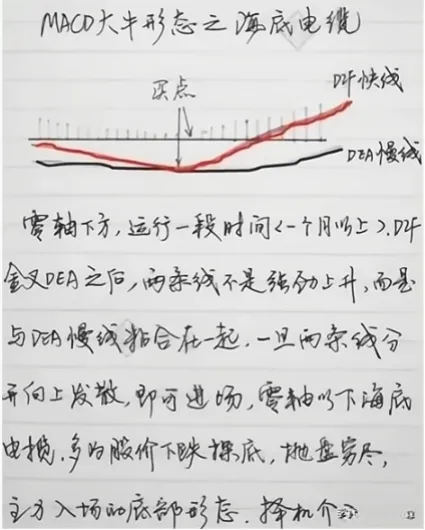 MACD大牛形态之海底电缆
买点
DIF快线
DEA慢线
零轴下方,运行一段时间<一个月以上>.DIF
金叉DEA之后,两条线不是强劲上升,而是
与DEA慢线粘合在一起.一旦两条线分
开向上发散,即可进场,零轴以下海底
电揽.多为股价下跌探底,抛盘穷尽,
主力入场的底部形态.择机介